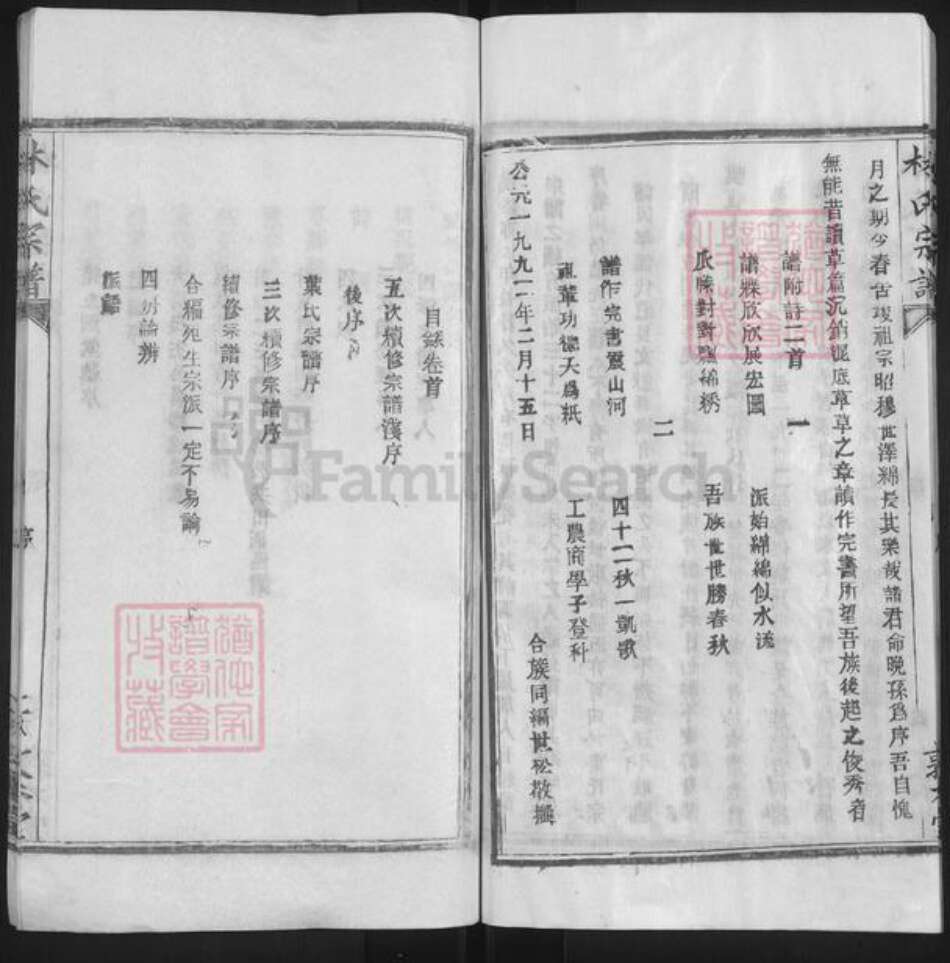 宗譜
月之期今春告竣祖宗昭穆世澤綿長其樂哉諸君命晚孫爲序吾自愧
無能昔讀草篇沉銷泥底草草之章讀作完書所望吾族後起之俊秀者
譜附詩二首
一
譜牒欣欣展宏圖 派始綿綿似水流
瓜瓞對對飄綿綉 吾族世世勝春秋
二
譜作完書震山河 四十二秋一凱歌
祖輩功德天爲紙 工農商學子登科
合族同編世松敬撰
公元一九九二年二月十五日
目錄卷首
五次續修宗譜濩序
後序
葉氏宗譜序
三次續修宗譜序
續修宗譜序
合編先生宗派一定不易論
四明論辨
派語
林氏宗譜
序
猶他家譜學會收藏
FamilySearch